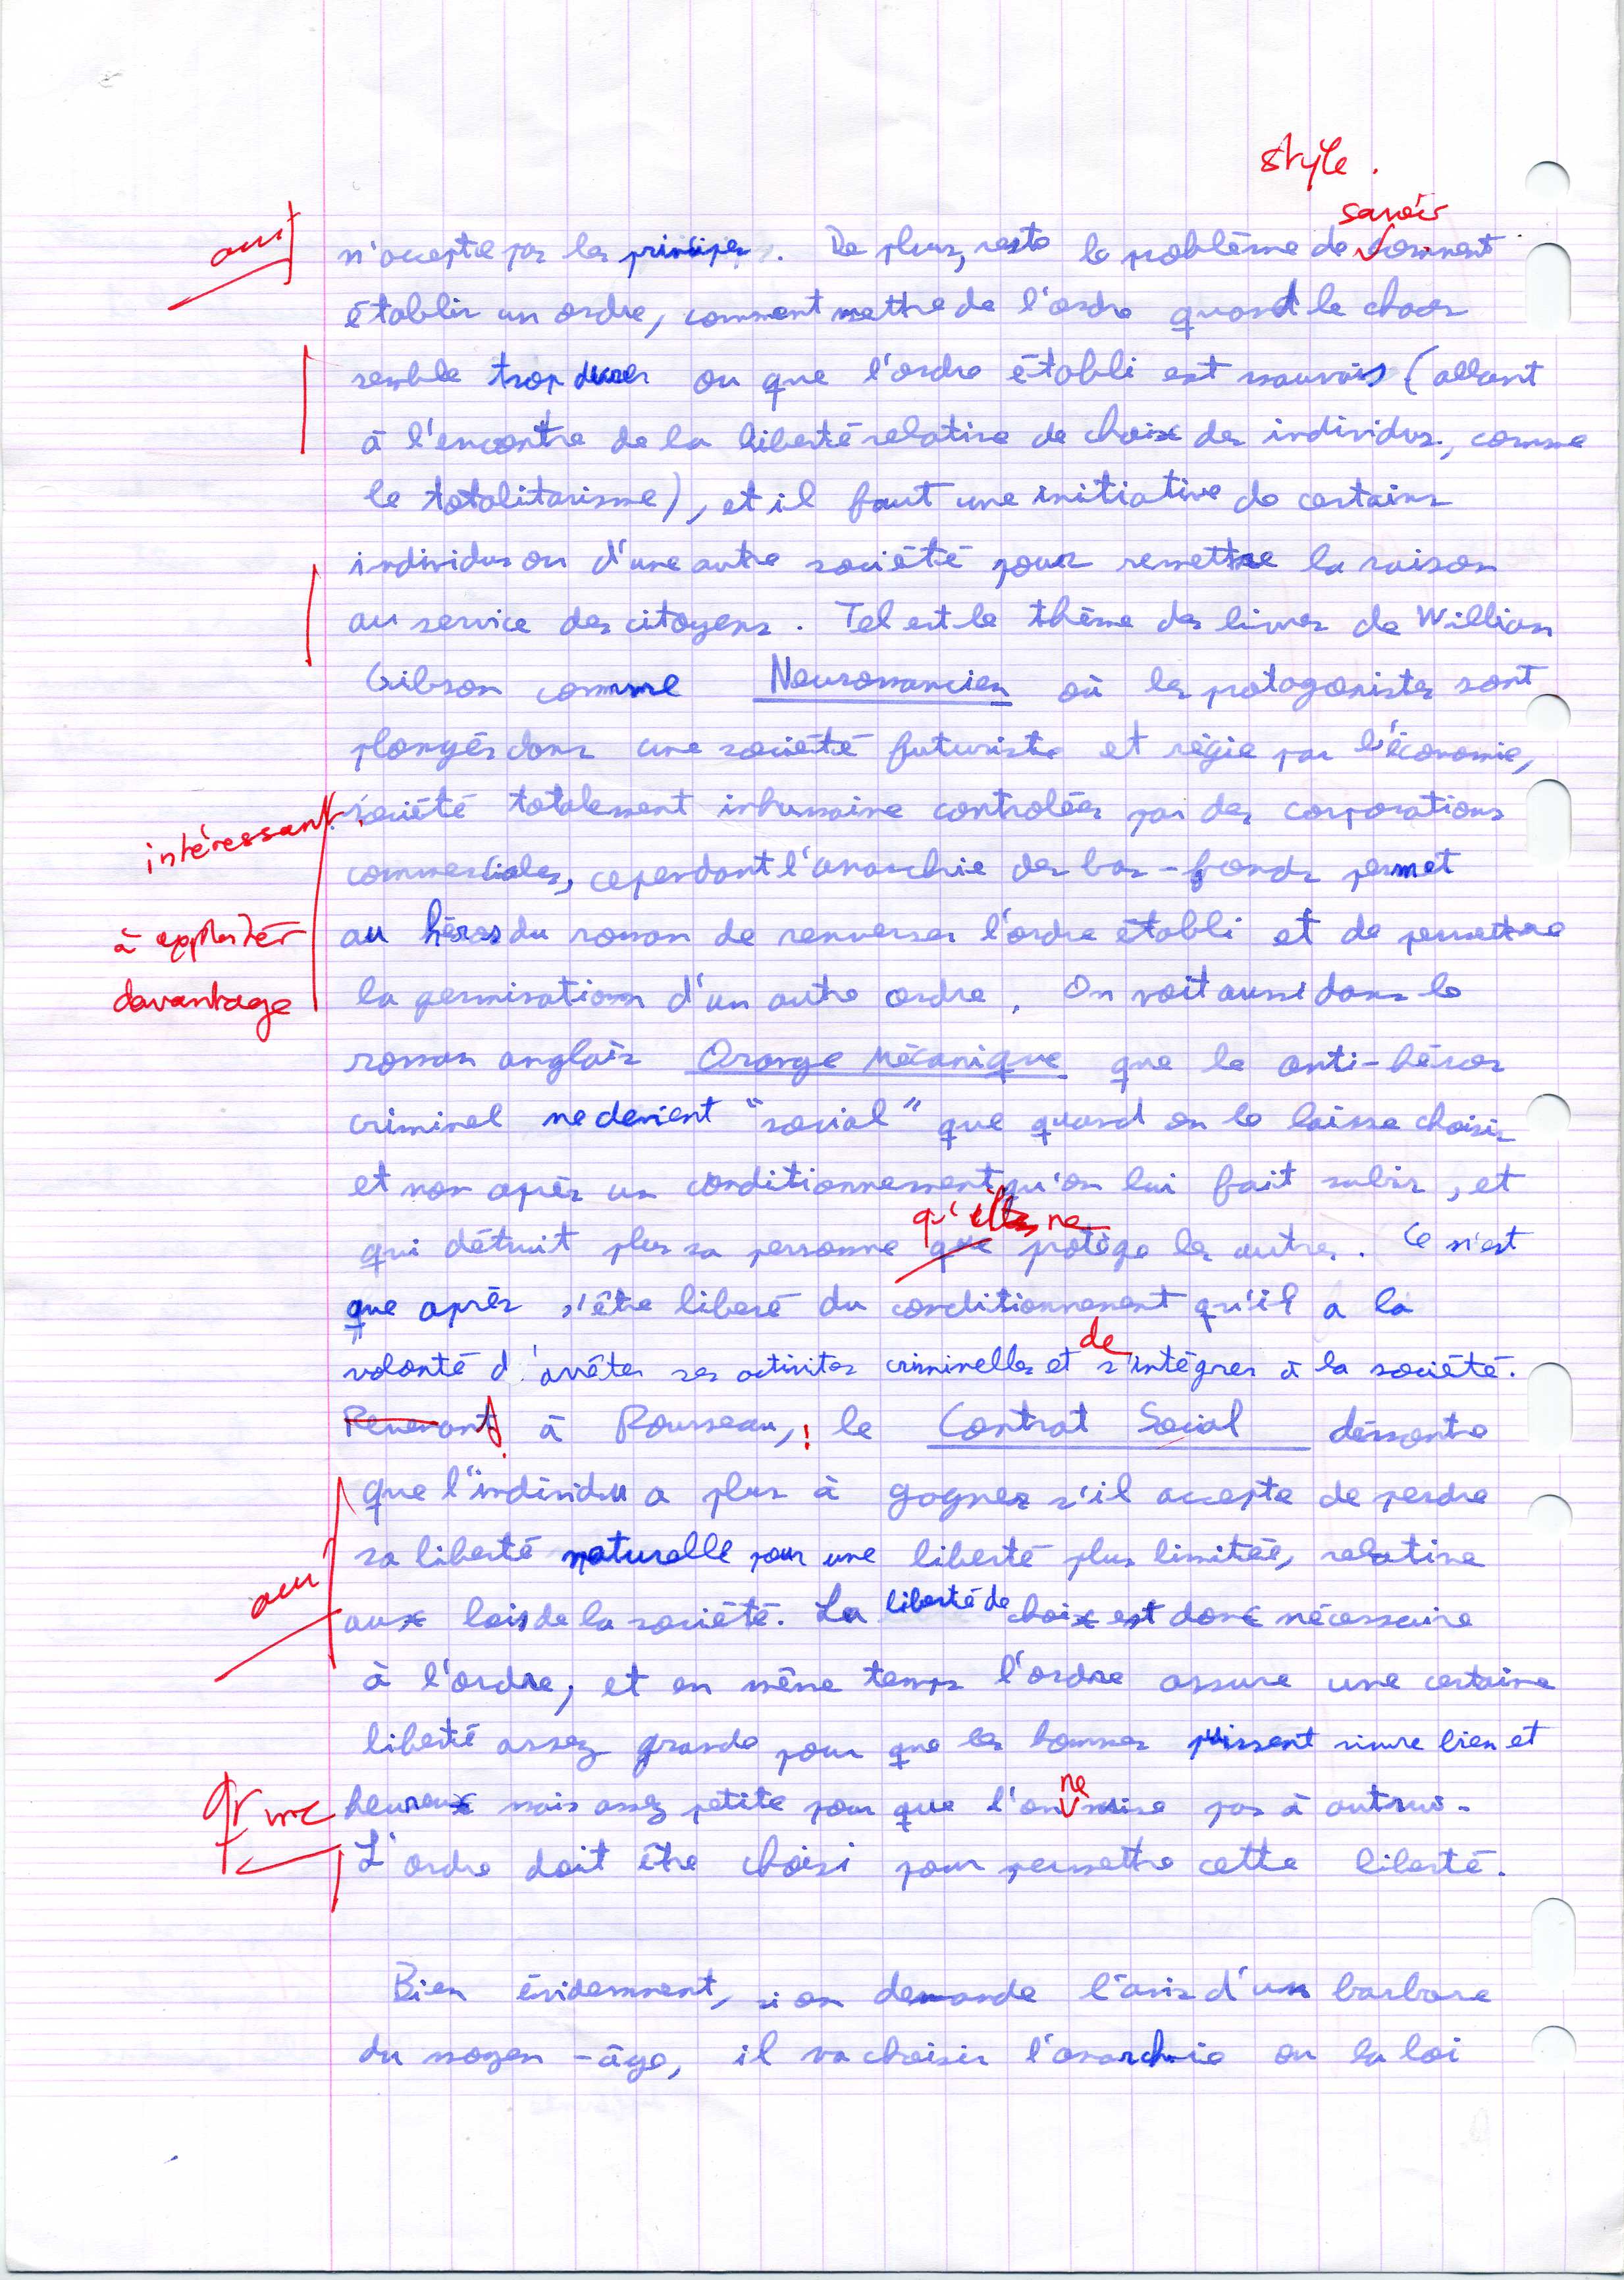 style.
savoir
oui n'accepte pas les principes. De plus, reste le problème de comment
établir un ordre, comment mettre de l'ordre quand le chaos
semble trop durer ou que l'ordre établi est mauvais (allant
à l'encontre de la liberté relative de choix des individus, comme
le totalitarisme), et il faut une initiative de certains
individus ou d'une autre société pour remettre la raison
au service des citoyens. Tel est le thème des livres de William
Gibson comme Neuromancien où les protagonistes sont
plongés dans une société futuriste et régie par l'économie,
intéressant société totalement inhumaine controlées par des corporations
commerciales, cependant l'anarchie des bas-fonds permet
à exploiter au héros du roman de renverser l'ordre établi et de permettre
davantage la germination d'un autre ordre. On voit aussi dans le
roman anglais Orange Mécanique que le anti-héros
criminel ne devient "social" que quand on le laisse choisir
et non après un conditionnement qu'on lui fait subir, et
qu'il ne
qui détruit plus sa personne que protège les autres. Ce n'est
que après s'être liberé du conditionnement qu'il a la
de
volonté d'arrêter ses activités criminelles et s'intégrer à la société.
Revenant à Rousseau, ! le Contrat Social démontre
que l'individu a plus à gagner s'il accepte de perdre
sa liberté naturelle pour une liberté plus limitée, relative
oui aux lois de la société. La liberté de choix est donc nécessaire
à l'ordre, et en même temps l'ordre assure une certaine
liberté assez grande pour que les hommes puissent vivre bien et
ne
heureux mais assez petite pour que l'on nuise pas à autrui.
L'ordre doit être choisi pour permettre cette liberté.
Bien évidemment, si on demande l'avis d'un barbare
du moyen-âge, il va choisir l'anarchie ou la loi